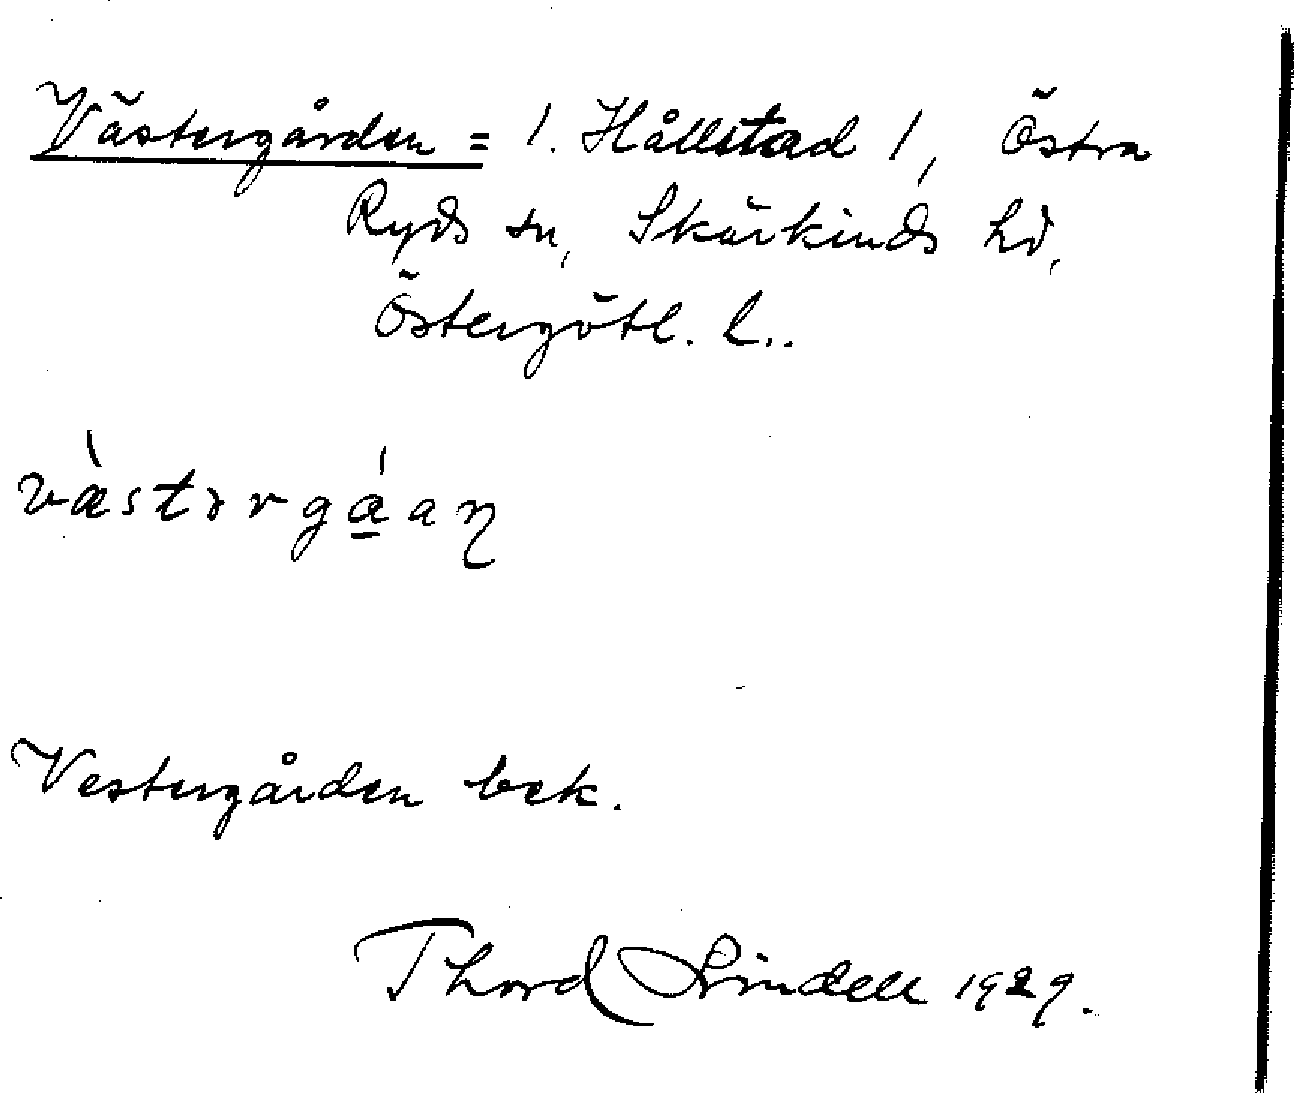 Västergården = 1. Hållstad 1, Östra
Ryds sn, Skärkinds hd,
Östergötl. l..
væ̀stərgá̲aɳ
Vestergården bek.
Thord Lindell 1929.